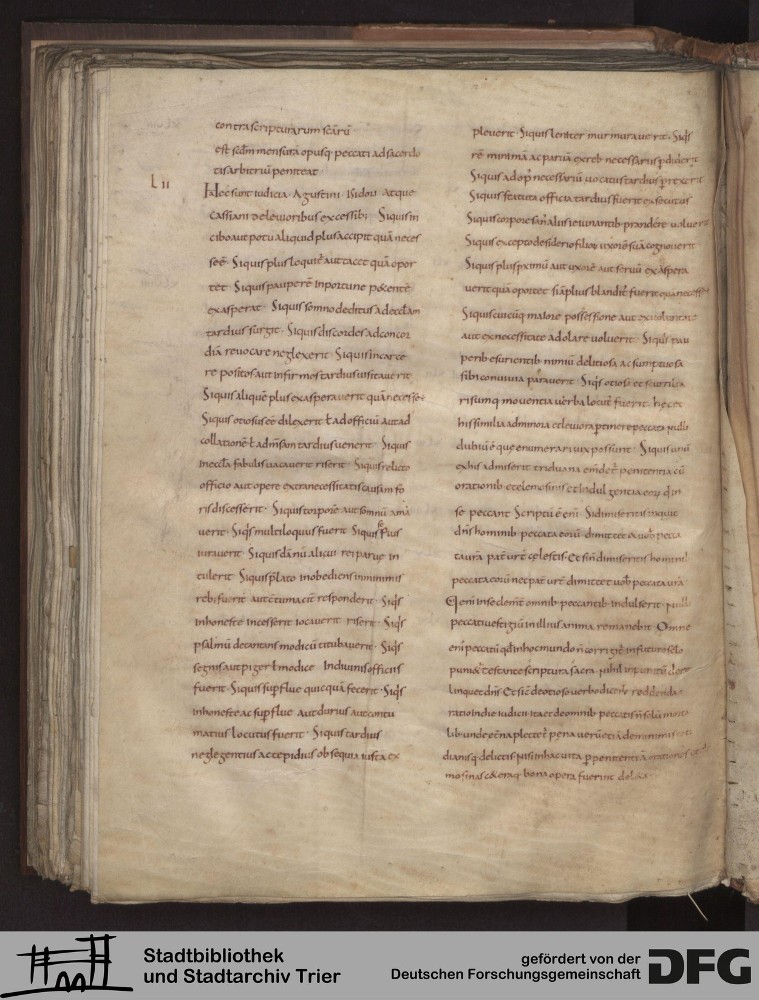 contra scripturarum scārū
est scdm mensurā opusq· peccati ad sacerdo
tis arbitriū peniteat·
LII
Haec sunt iudicia · Agustini · Isidori Atque
Cassiani de leuioribus excessib; · Siquis in
cibo aut potu aliquid plus accipit quā neces
seē· Siquis plus loquit̄ aut tacet quā opor
tet· Siquis pauperē inportune petentē
exasperat· Siquis somno deditus ad eccłam
tardius surgit· Siquis discordes ad concor
diā reuocare neglexerit· Siquis in carce
re positos aut infirmos tardius uisitauerit
Siquis aliquē plus exasperauerit quā necesse ē
Siquis otiosus eē dilexerit ł ad officiū aut ad
collationē ł ad mensam tardius uenerit· Siquis
in eccła fabulis uacauerit riserit· Siquis relicto
officio aut opere extra necessitatis causam fo
ris discesserit· Siquis torpore aut somnū ama
uerit· Siq̄s multiloquus fuerit Siquis sepius
iurauerit Siquis dānū alicui rei parue in
tulerit Siquis p̄lato inobediens in minimis
reb; fuerit aut c̄tumacit̄ responderit· Siq̄s
inhoneste incesserit iocauerit riserit· Siq̄s
psalmū decantans modicū titubauerit· Siq̄s
segnis aut piger ł modice in diuinis officiis
fuerit· Siquis sup̄flue quicquā fecerit· Siq̄s
inhoneste ac sup̄flue aut durius aut contu
matius locutus fuerit· Siquis tardius
neglegentius ac tepidius obsequia iusta ex
pleuerit· Siquis leniter murmurauerit· Siq̄s
rē minimā ac paruā ex reb; necessariis p̄diderit
Siquis ad op; necessariū uocatus tardius
Siquis statuta officia tardius fuerit executus
Siquis corpore san; alius ieiunantib; prandere uoluerit
Siquis excepto desiderio filiorū uxorē suā cognouerit
Siquis plus p̄ximū aut uxorē aut seruū exaspera
uerit quā oportet siā plius blandit̄ fuerit quā necesse ē
Siquis cuicūq; maiore possessione aut ex uoluntate
aut ex necessitate adolare uoluerit· Siquis pau
perib; esurientib; nimiū delitiosa ac sumptuosa
sibi conuiuia parauerit· Siq̄s otiosa et scurrilia
risumq; mouentia uerba locut; fuerit· hęc et
his similia ad minora et leuiora p̄tinere peccata nulli
dubiū ē que enumerari uix possunt· Siquis unū
ex his admiserit triduana emdet̄ penitentia cū
orationib; et elemosinis et indulgentia eorū q̄ in
se peccant Scriptū ē enī· Si dimiseritis inquit
dn̄s hominib; peccata eorū· dimittet et uob; pecca
ta ur̄a pat̄ ur̄ cęlestis· Et si n̄ dimiseritis hominib;
peccata eorū nec pat̄ ur̄ dimittet uob; peccata ur̄a
Qi enī in se delinq̄t omnib; peccantib; indulserit· nullū
peccati uestigiū in illius anima remanebit· Omne
enī peccatū qd in hoc mundo n̄ corrigit̄ in futuro sclo
puniet̄ testante scriptura sacra· nihil inpunitū dere
linquet dn̄s· Et si ē de otioso uerbo dicere reddenda
ratio in die iudicii ita et de omnib; peccatis n̄ solū mortа
lib; unde et̄na plectet̄ pena uerū etiā de minimis coti
dianisq; delictis nisi in hac uita p̄ penitentiā orationes et ele
mosinas cęteraq; bona opera fuerint deleta·
Stadtbibliothek
und Stadtarchiv Trier
gefördert von der
Deutschen Forschungsgemeinschaft
DFG